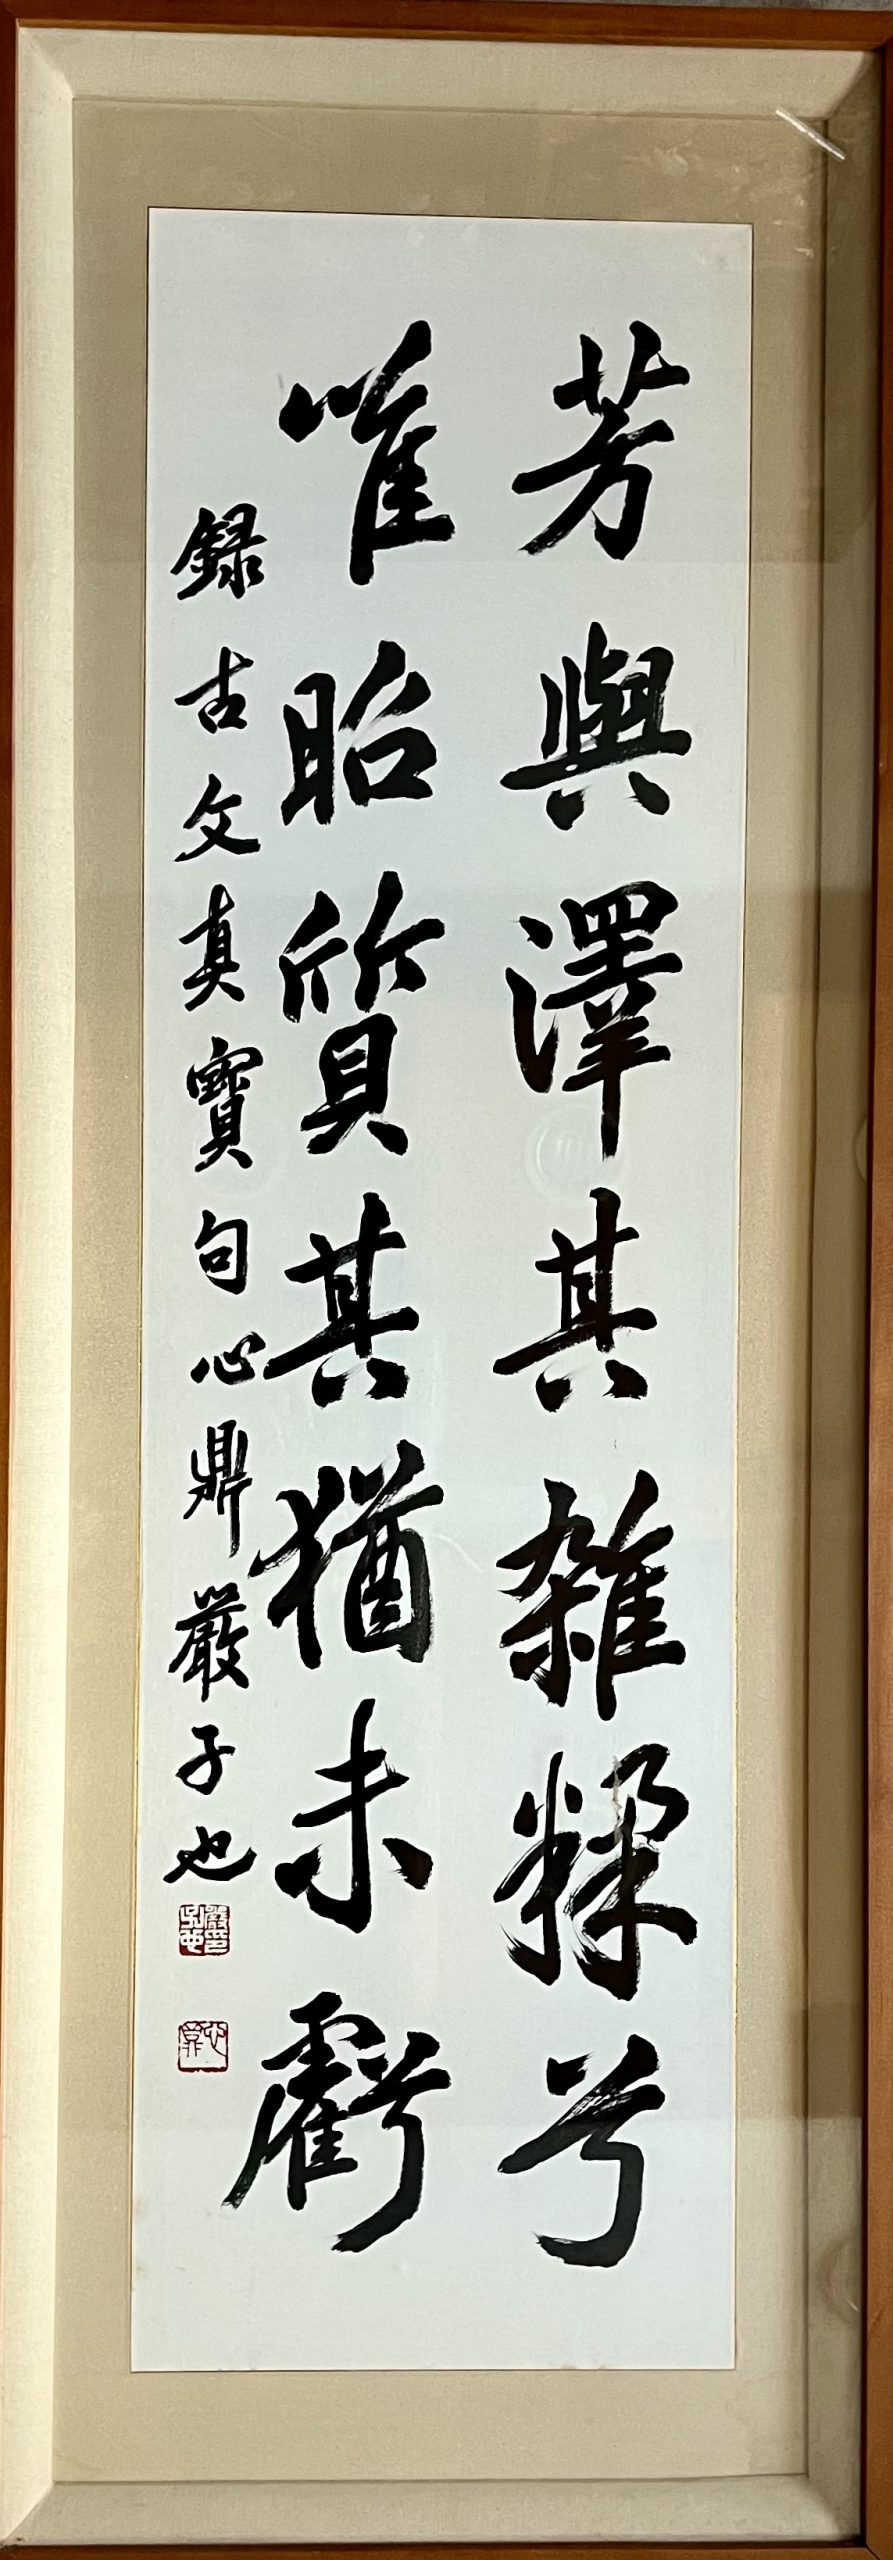 芳與澤其雜糅兮
唯昭質其猶未虧
録古文真寶句心鼎嚴子也